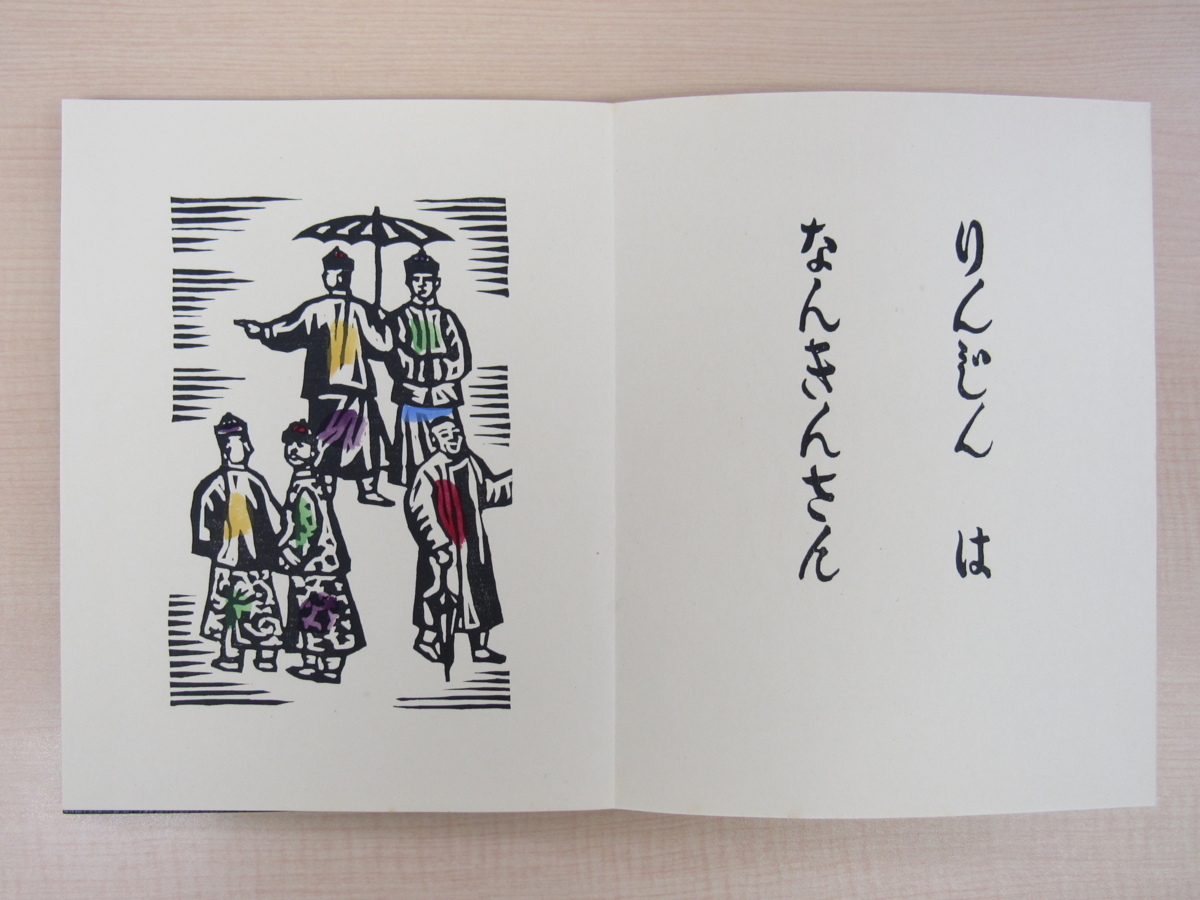 りんじん は
なんきんさん